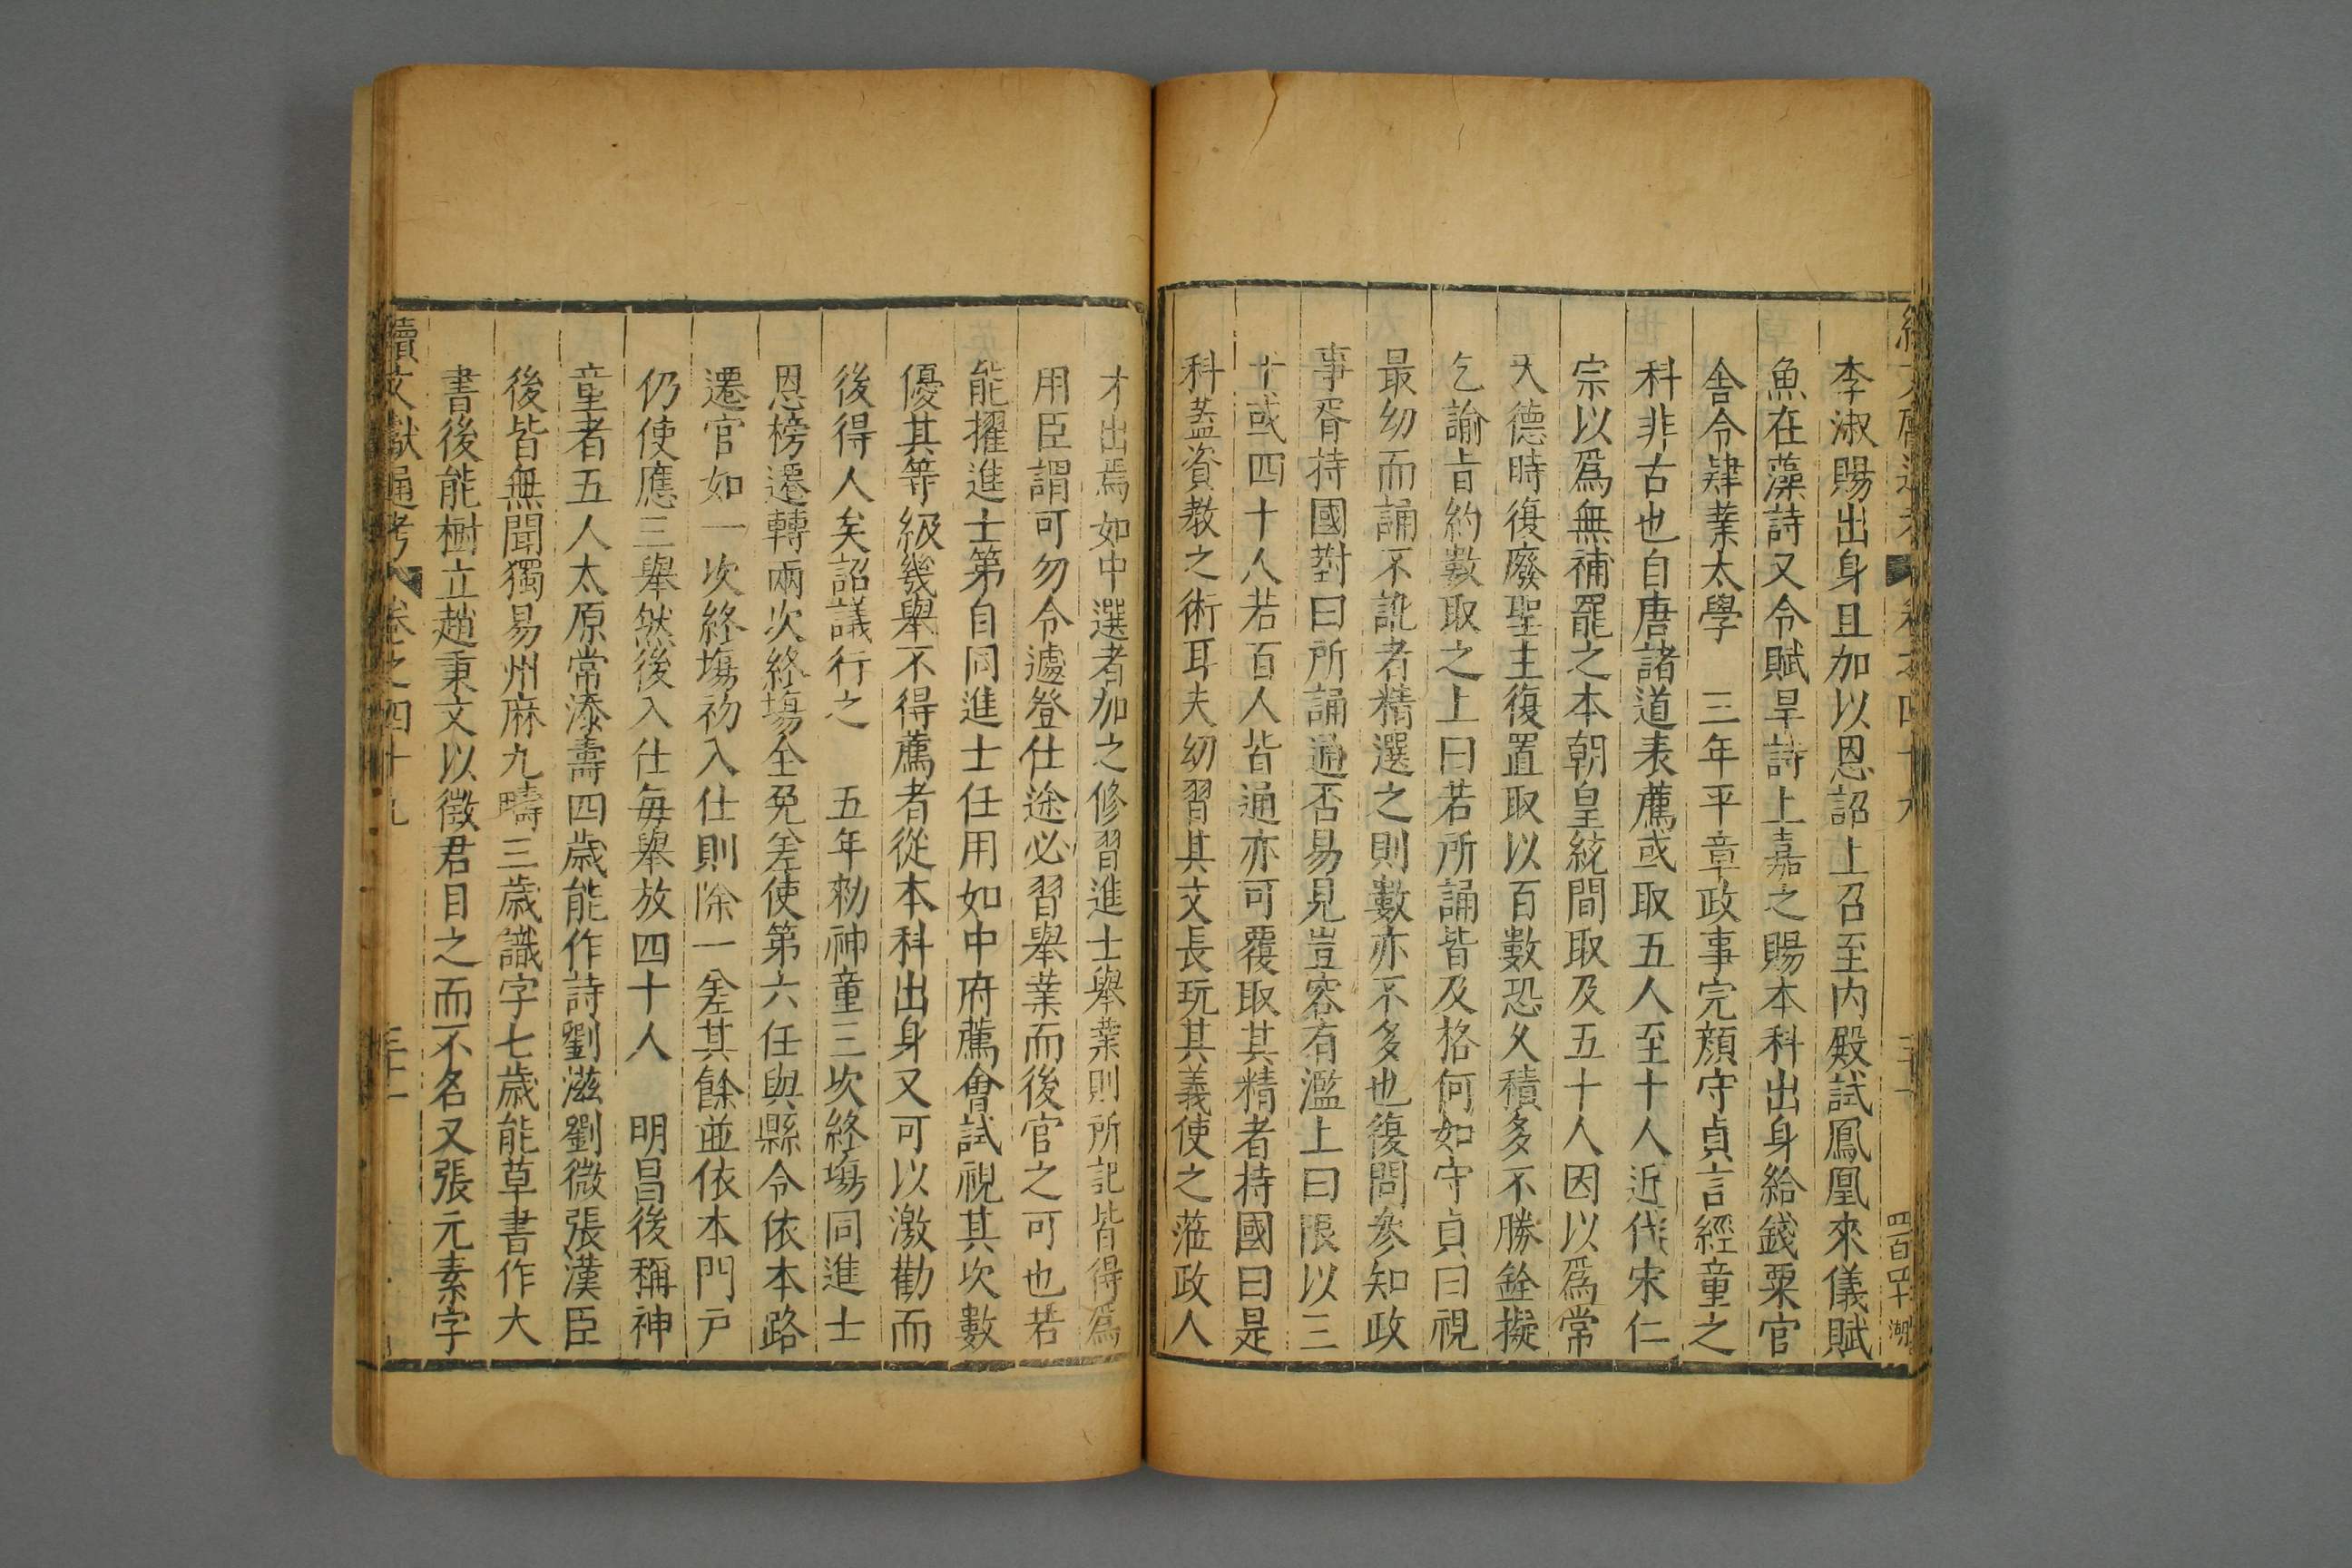 李淑賜出身且加以恩詔上召至内殿試鳳凰來儀賦
魚在藻詩又令賦旱詩上嘉之賜本科出身給錢粟官
舍令肄業太學　三年平章政事完顔守貞言經童之
科非古也自唐諸道表薦或取五人至十人近代宋仁
宗以爲無補罷之本朝皇統間取及五十人因以爲常
天德時復廢聖主復置取以百數恐久積多不勝銓擬
乞諭旨約數取之上曰若所誦皆及格何如守貞曰視
最幼而誦不訛者精選之則數亦不多也復問參知政
事胥持國對曰所誦通否易見豈容有濫上曰限以三
十或四十人若百人皆通亦可覆取其精者持國曰是
科蓋資教之術耳夫幼習其文長玩其義使之蒞政人
才出焉如中選者加之修習進士舉業則所記皆得爲
用臣謂可勿令遽登仕途必習舉業而後官之可也若
能擢進士第自同進士任用如中府薦會試視其次數
優其等級幾舉不得薦者從本科出身又可以激勸而
後得人矣詔議行之　五年勑神童三次終塲同進士
恩榜遷轉兩次終塲全免差使第六任與縣令依本路
遷官如一次終塲初入仕則除一差其餘並依本門戸
仍使應三舉然後入仕每舉放四十人　明昌後稱神
童者五人太原常添壽四歳能作詩劉滋劉微張漢臣
後皆無聞獨易州麻九疇三歳識字七歳能草書作大
書後能樹立趙秉文以徵君目之而不名又張元素字
續文獻通考　卷之四十九